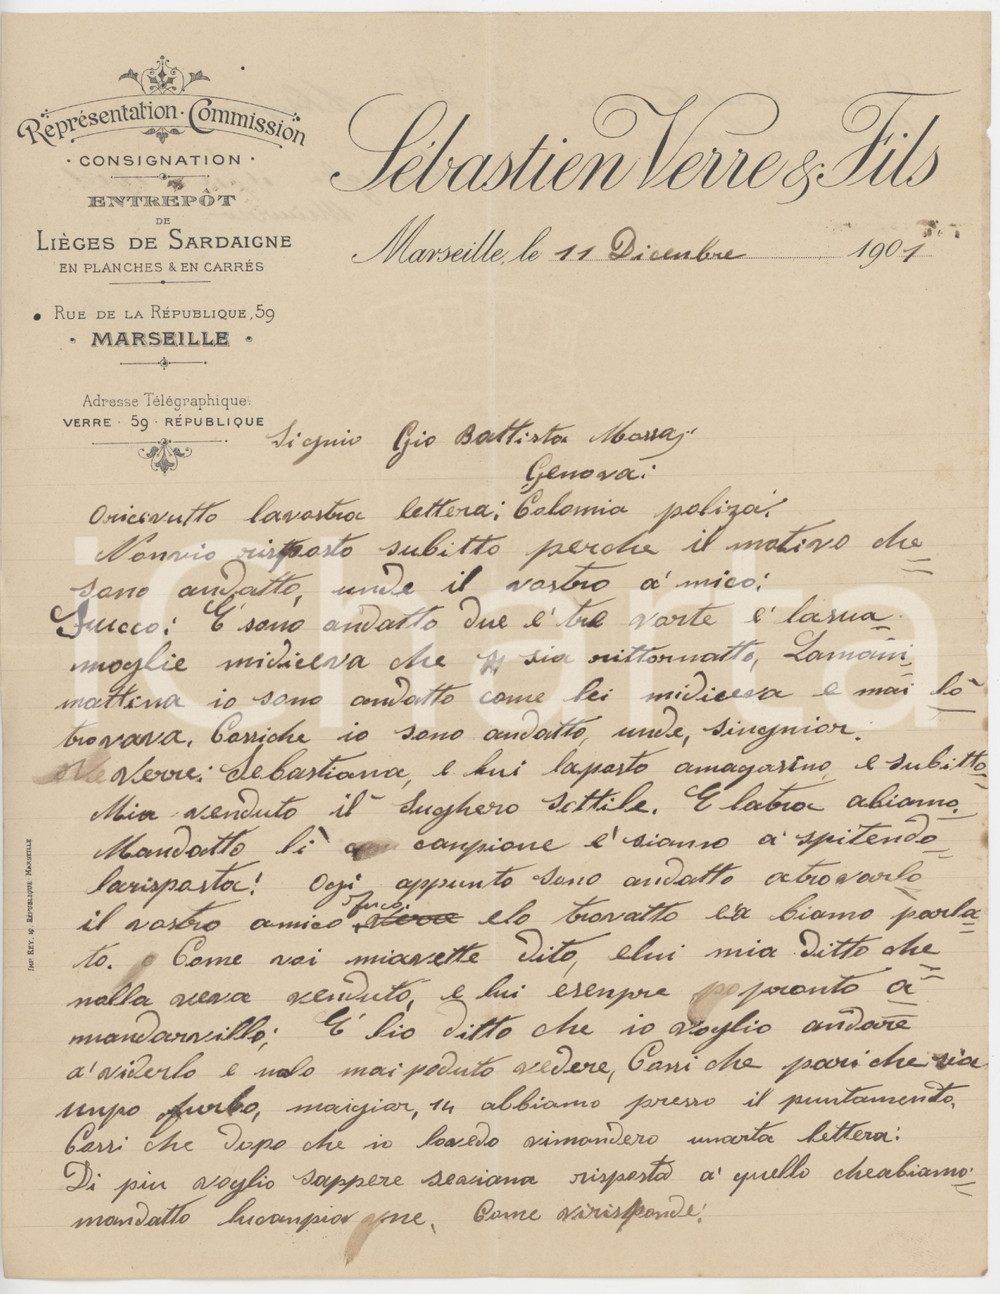 Représentation · Commission
· CONSIGNATION ·
ENTREPÔT
DE
LIÈGES DE SARDAIGNE
EN PLANCHES & EN CARRÉS
RUE DE LA RÉPUBLIQUE, 59
· MARSEILLE ·
Adresse Télégraphique:
VERRE · 59 · RÉPUBLIQUE
Sébastien Verre & Fils
Marseille, le 11 Dicenbre 1901
Gio Battista Massa
Genova:
Oricevutto lavostra lettera; Colamia poliza;
Nonvio risposto subitto perche il motivo che
sono andatto, unde il vostro a' mico:
E' sono andatto due e' tre vorte e' lasua
moglie midiceva che sia rittornatto, Lamani
mattina io sono andatto come lei midiceva e mai lo
trovava. Cossiche io sono andatto, unde, singnior.
Verre: Sebastiana, e lui laposto amagasino, e subitto
Mia venduto il Sughero Sottile. E latra abiamo
Mandatto li canpione e' siamo a' spitendo
larisposta! Ogi appunto sono andatto atrovarlo
il vostro amico elo trovatto e'a biamo parla
to. Come voi miavette dito, elui mia ditto che
nolla veva venduto, e lui esenpre pronto a
mandarvillo; E' lio ditto che io voglio andare
a' viderlo e nolo mai poduto vedere, Cossi che pari che sia
unpo furbo, maigior, 14 abbiamo presso il puntamento,
Cossi che dopo che io lovedo vimandero unarta lettera:
Di piu voglio sappere seaviana risposta a' quello cheabiamo
mandatto lucanpiogne, Come virisponde:
IMP. REY, RÉPUBLIQUE · MARSEILLE
iCharta